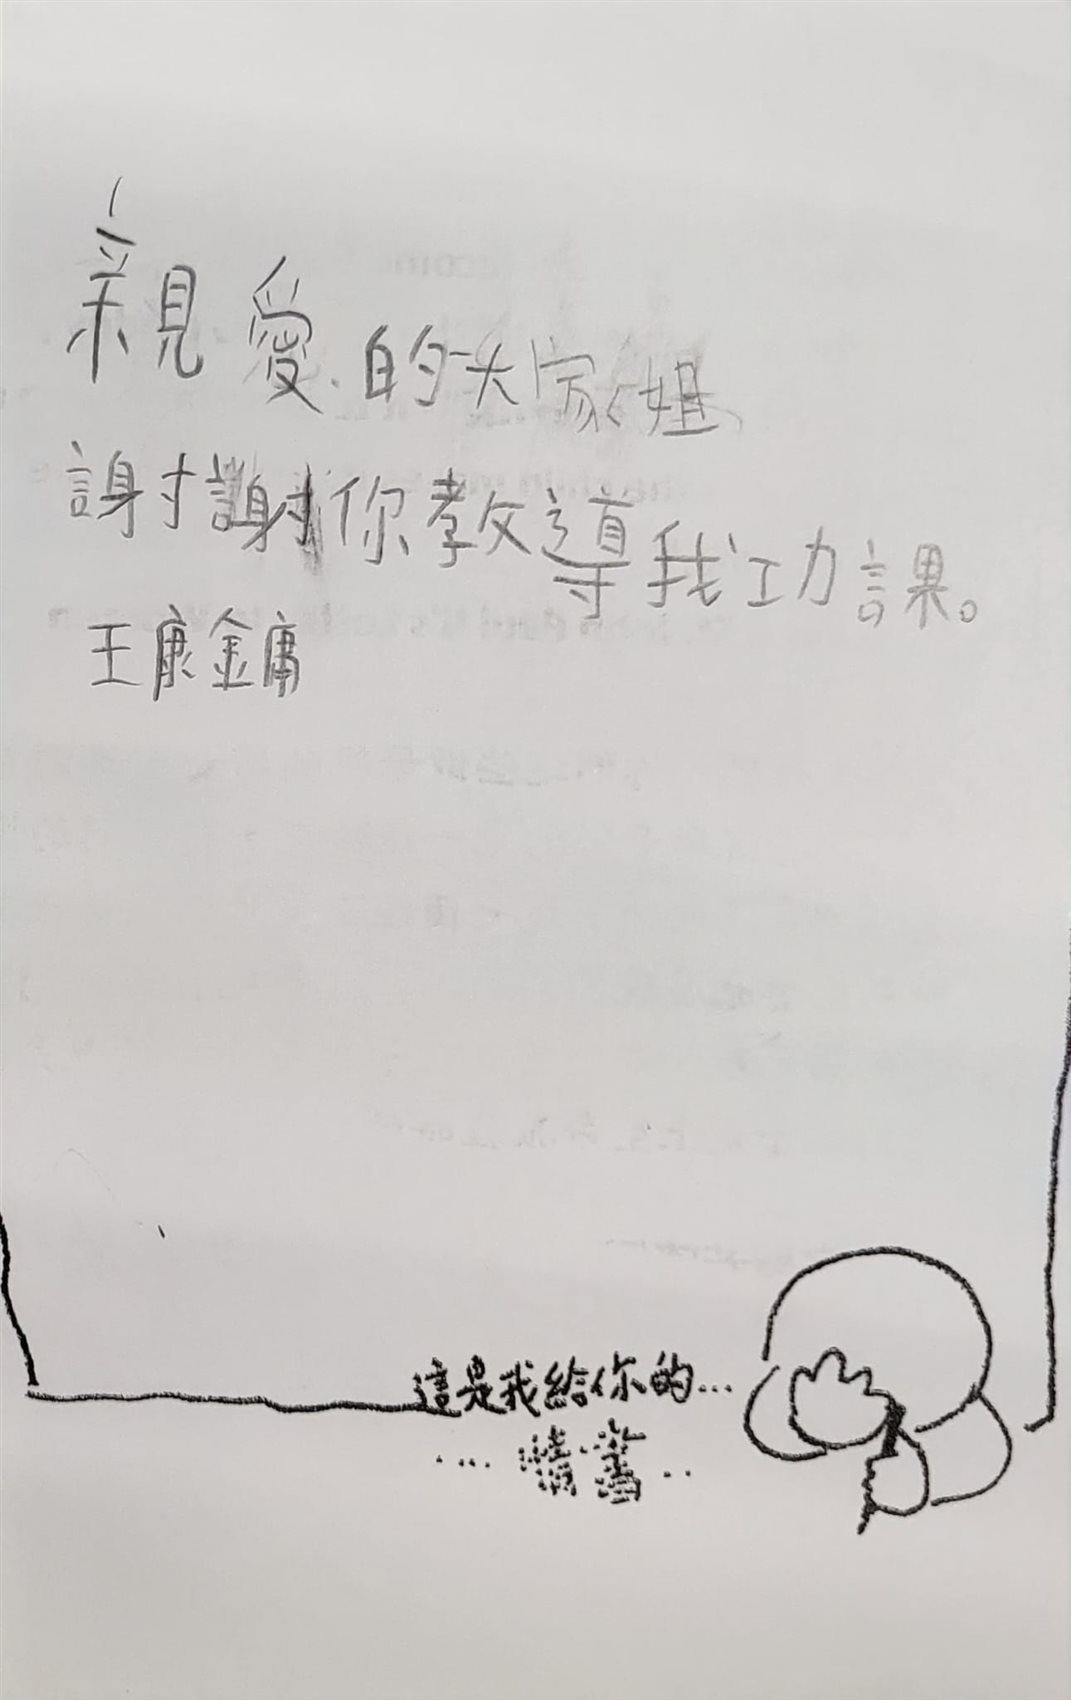 親愛的大家姐
謝謝你教導我功課。
王康金庸
這是我給你的...